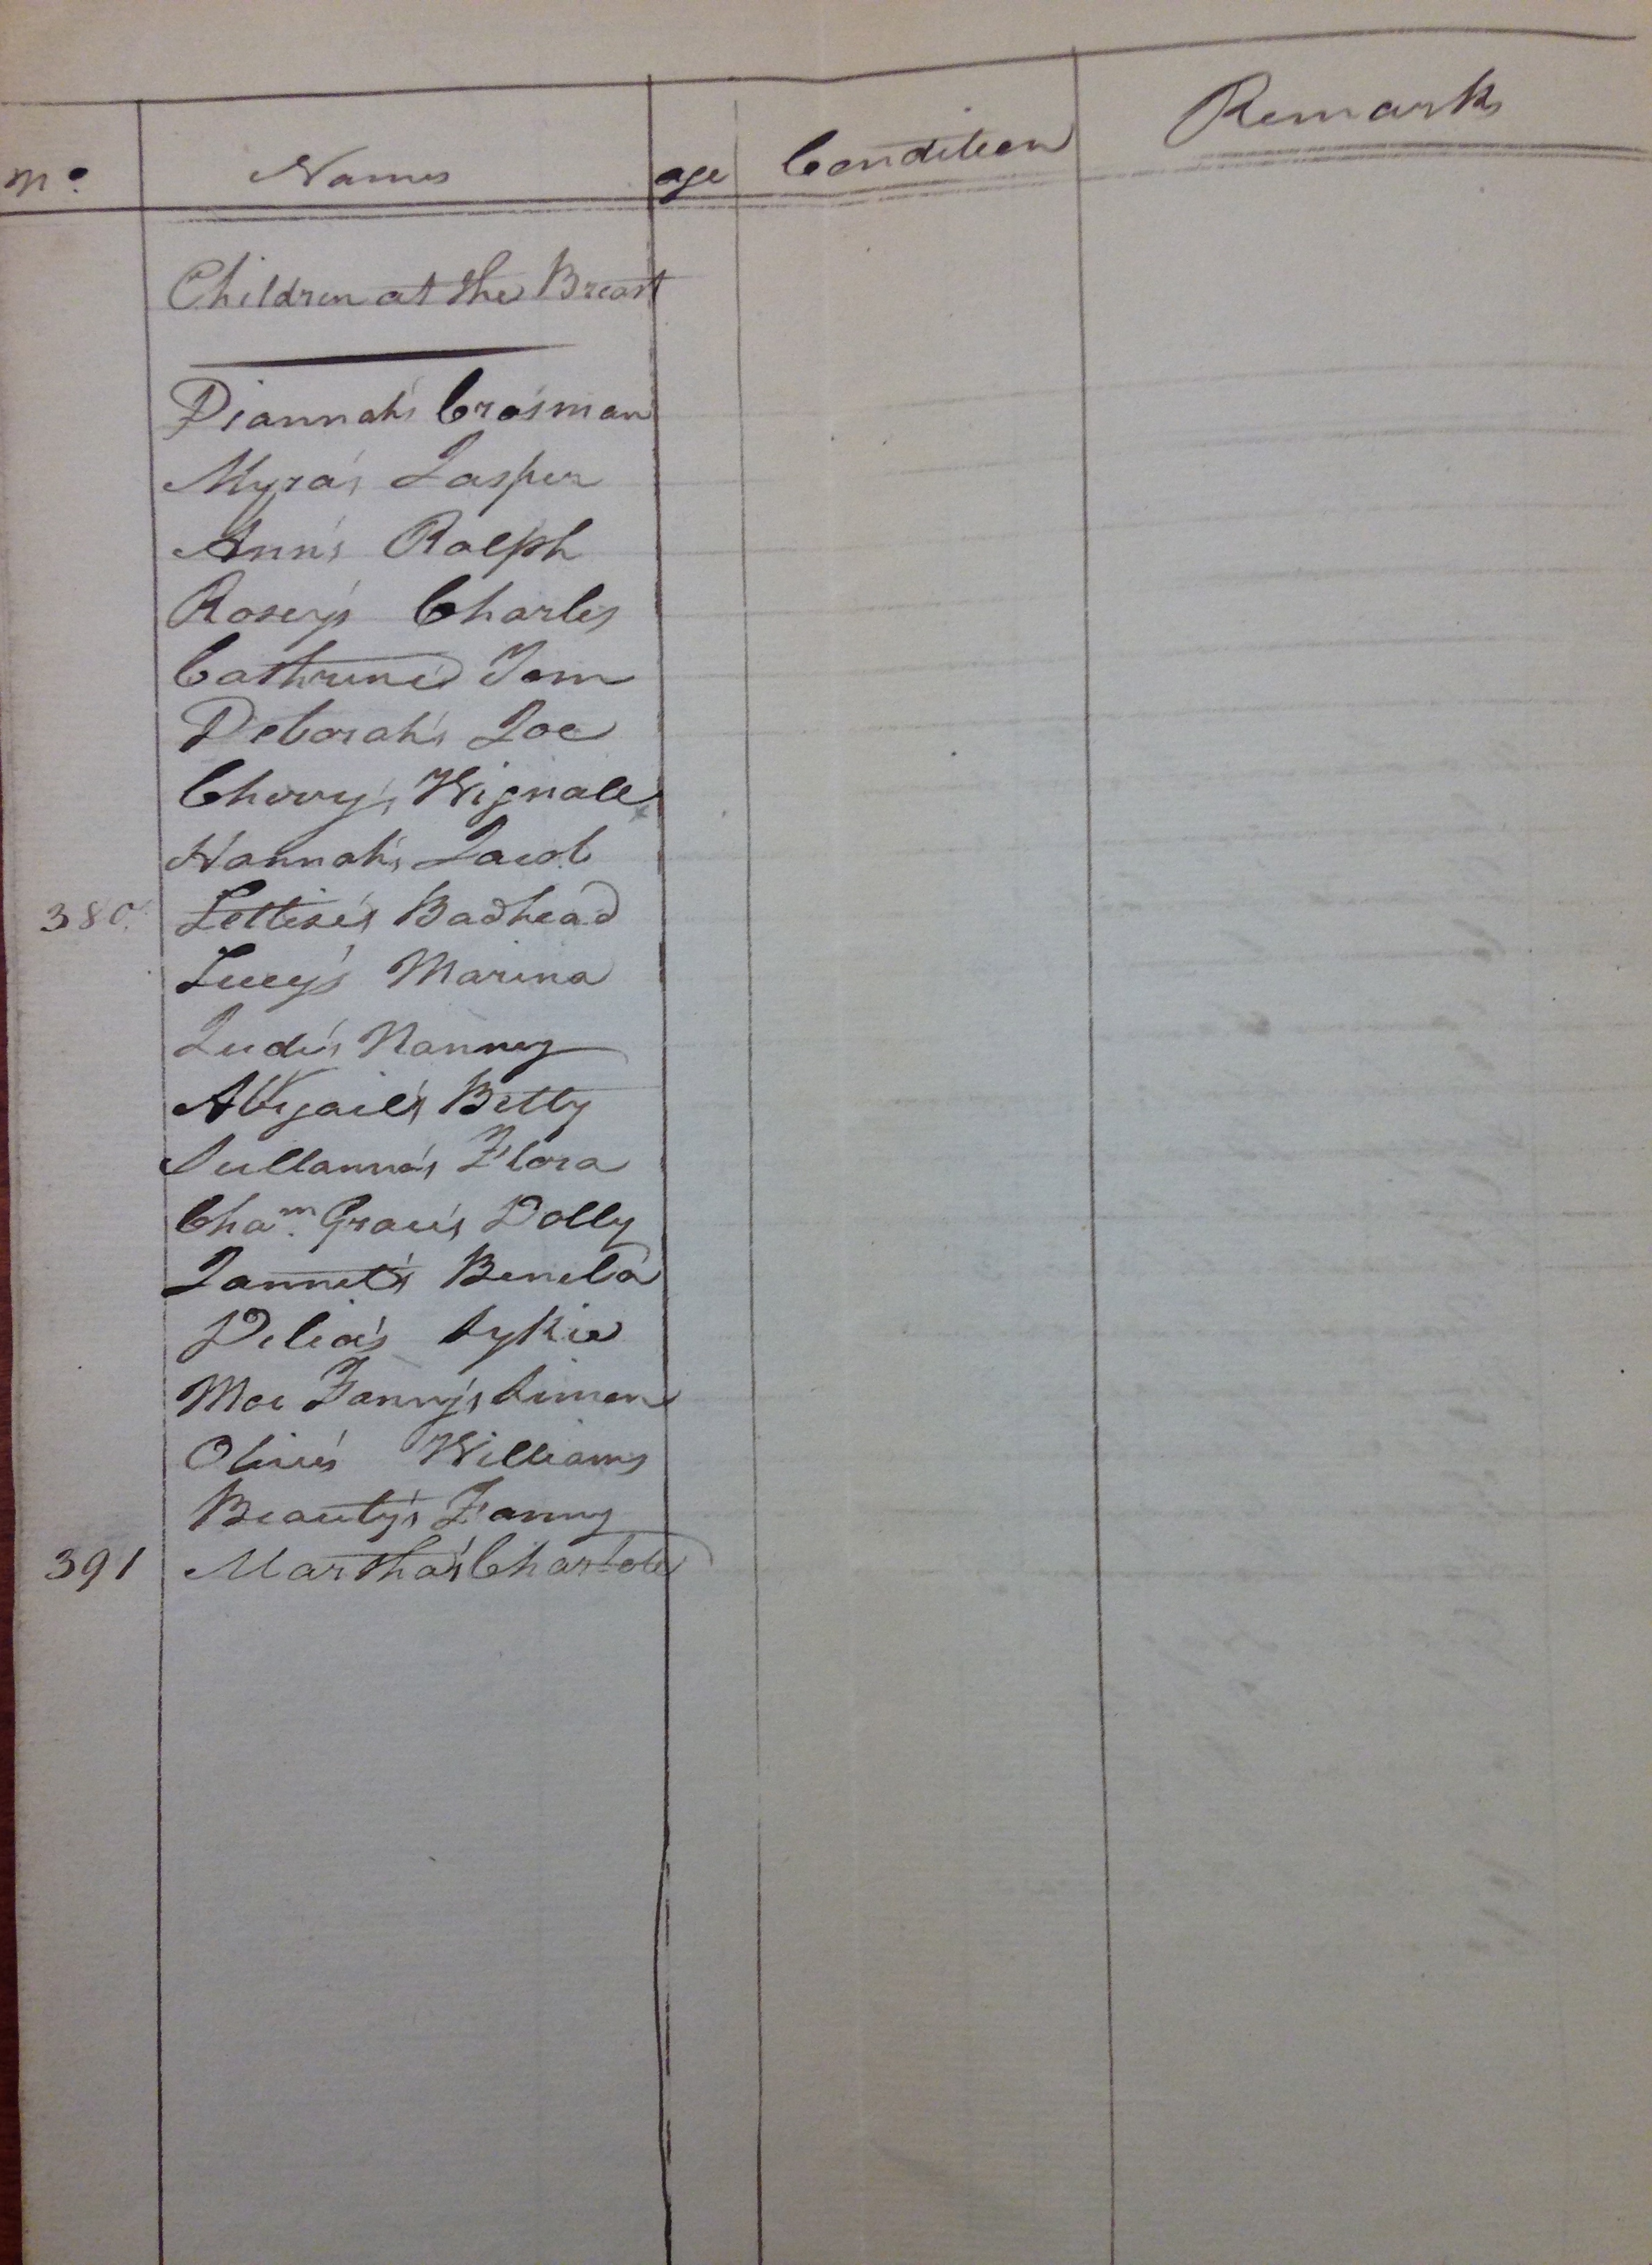 No. Names age Condition Remarks
Children at the Breast
Diannah's Crosman
Myra's Jasper
Ann's Ralph
Rosey's Charles
Cathrine's Tom
Deborah's Joe
Wignall
Hannah's Jacob
380. Lettice's Badhead
Lucy's Marina
Judy's Nanney
Abigail's Betty
Sullanna's Flora
Cham. Grace's Dolly
Jannet's Beneba
Delia's Sykie
Moe Fanny's Simon
Olive's Williams
Beauty's Fanny
391 Martha's Charlotte